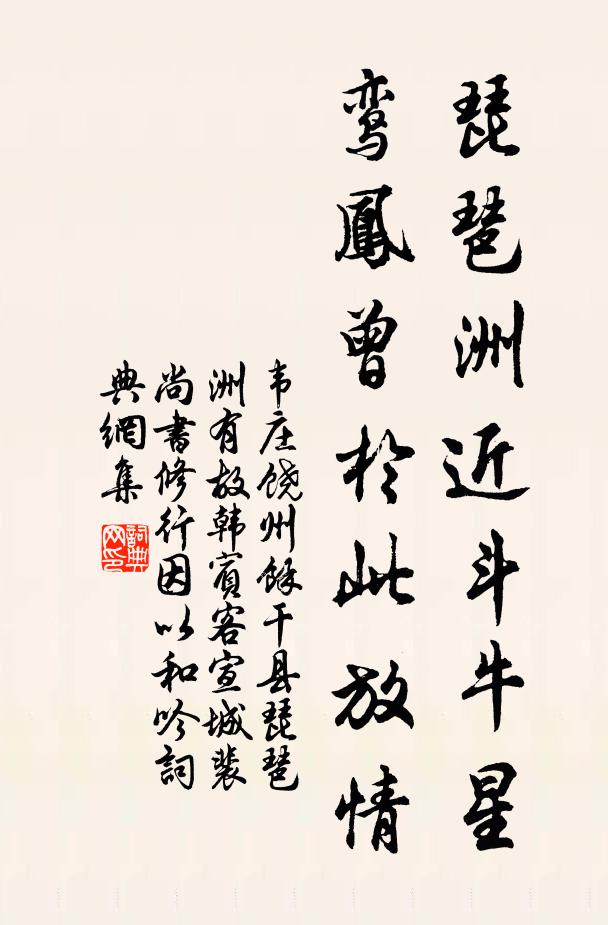 琵琶洲近斗牛星
鸾鳳曾於此放情
韦庄饶州餘干县琵琶
洲有故韩賓客宣城裴
尚書修行因以和吟詞
典網集
詞典
网印